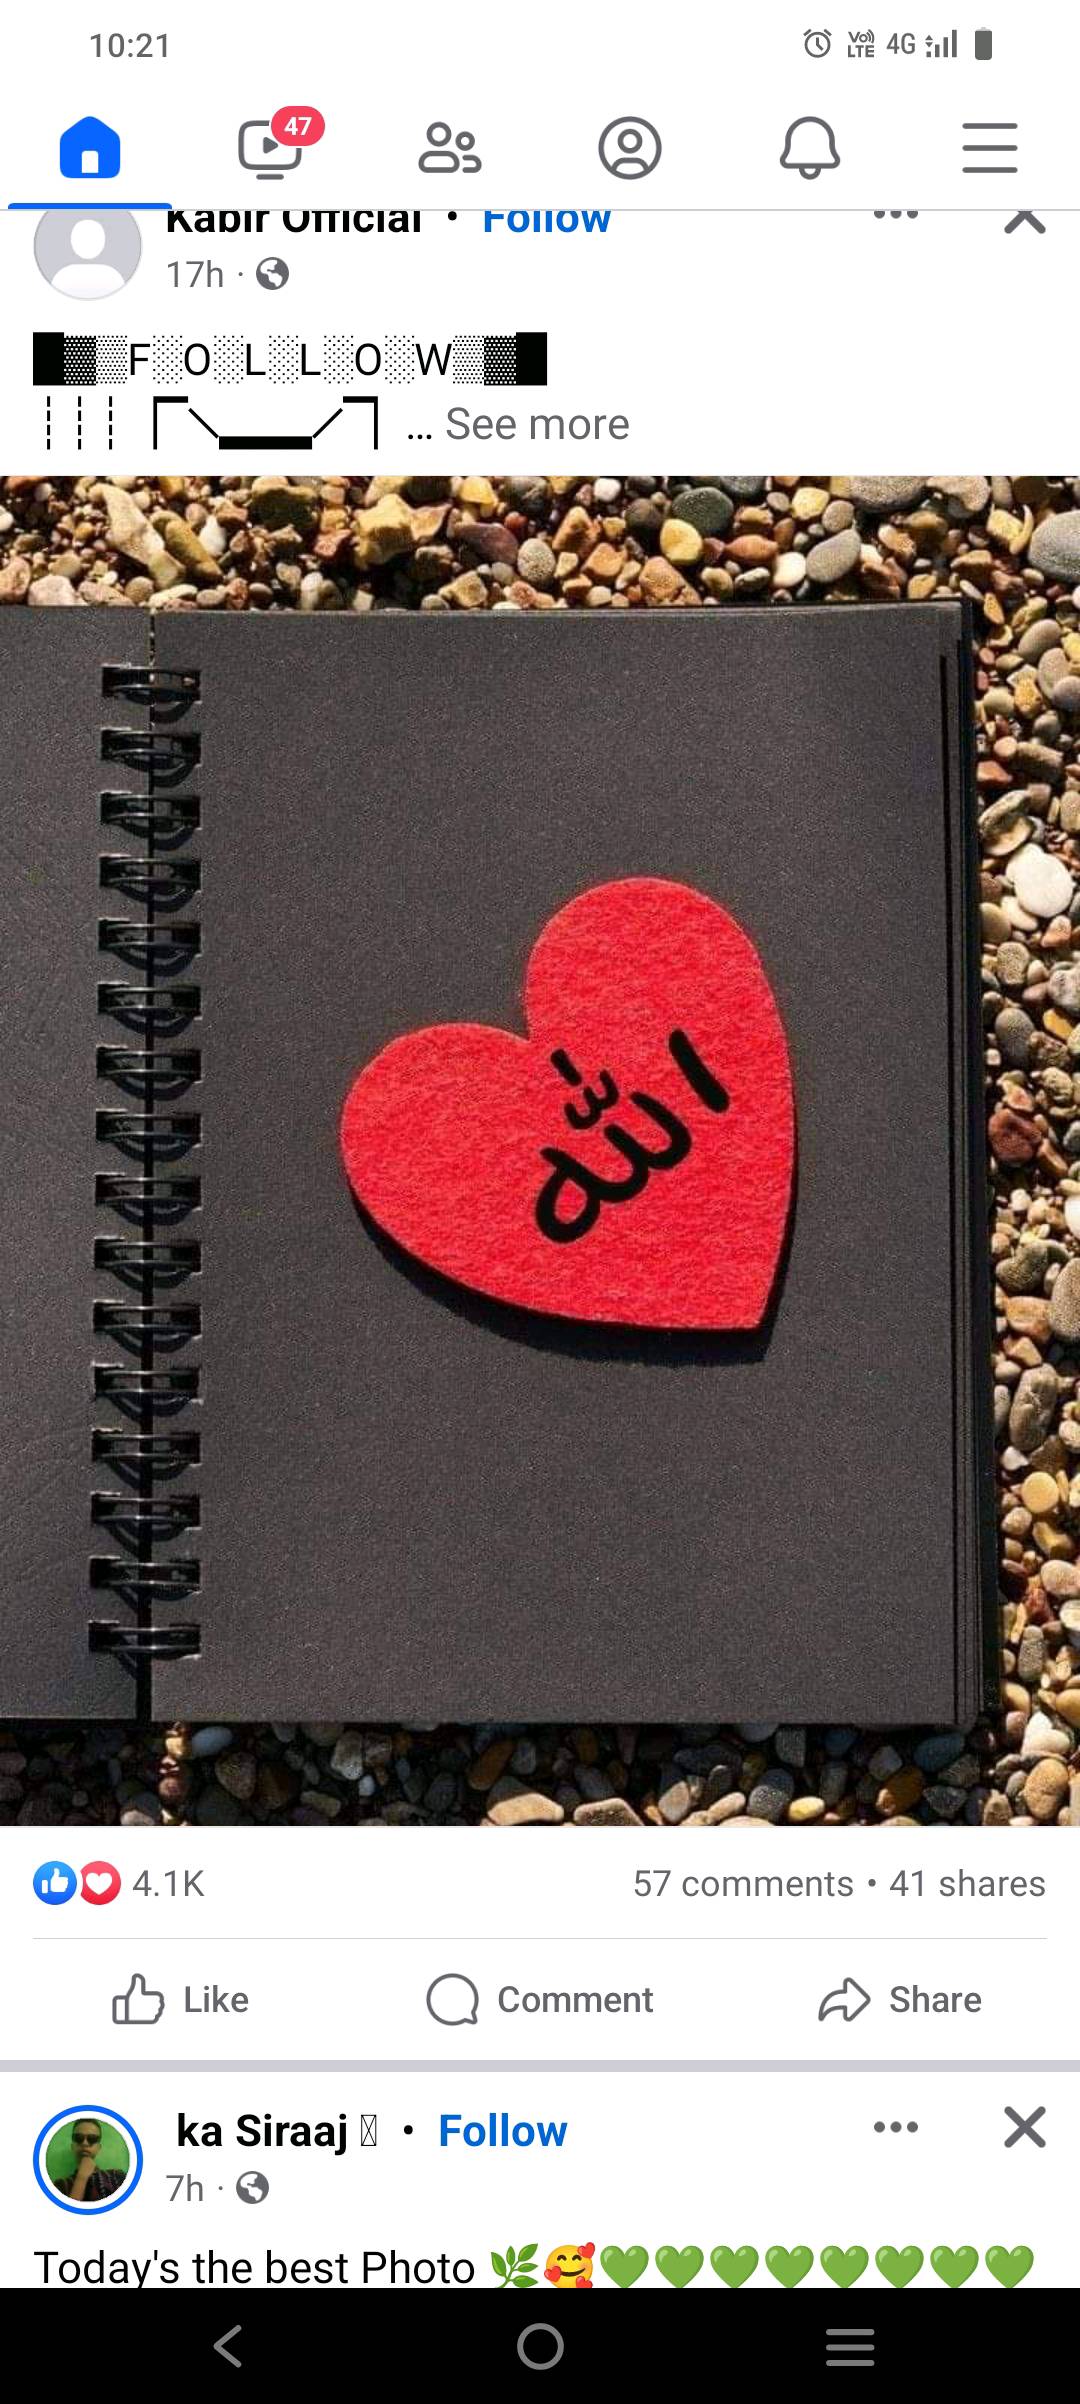 10:21
Vo) LTE 4G
47
Kabir Official • Follow
17h ·
█▓▒F░O░L░L░O░W▒▓█
... See more
الله
4.1K
57 comments • 41 shares
Like Comment Share
ka Siraaj • Follow
7h ·
Today's the best Photo 🌿🥰💚💚💚💚💚💚💚💚